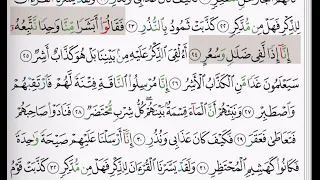 لِلذِّكْرِ فَهَلْ مِن مُّدَّكِرٍ ٢٢ كَذَّبَتْ ثَمُودُ بِٱلنُّذُرِ ٢٣ فَقَالُوٓا۟ أَبَشَرًا مِّنَّا وَٰحِدًا نَّتَّبِعُهُۥٓ
إِنَّآ إِذًا لَّفِى ضَلَٰلٍ وَسُعُرٍ ٢٤ أَءُلْقِىَ ٱلذِّكْرُ عَلَيْهِ مِنۢ بَيْنِنَا بَلْ هُوَ كَذَّابٌ أَشِرٌ ٢٥
سَيَعْلَمُونَ غَدًا مَّنِ ٱلْكَذَّابُ ٱلْأَشِرُ ٢٦ إِنَّا مُرْسِلُوا۟ ٱلنَّاقَةِ فِتْنَةً لَّهُمْ فَٱرْتَقِبْهُمْ
وَٱصْطَبِرْ ٢٧ وَنَبِّئْهُمْ أَنَّ ٱلْمَآءَ قِسْمَةٌۢ بَيْنَهُمْ كُلُّ شِرْبٍ مُّحْتَضَرٌ ٢٨ فَنَادَوْا۟ صَاحِبَهُمْ
فَتَعَاطَىٰ فَعَقَرَ ٢٩ فَكَيْفَ كَانَ عَذَابِى وَنُذُرِ ٣٠ إِنَّآ أَرْسَلْنَا عَلَيْهِمْ صَيْحَةً وَٰحِدَةً
فَكَانُوا۟ كَهَشِيمِ ٱلْمُحْتَظِرِ ٣١ وَلَقَدْ يَسَّرْنَا ٱلْقُرْءَانَ لِلذِّكْرِ فَهَلْ مِن مُّدَّكِرٍ ٣٢ كَذَّبَتْ قَوْمُ